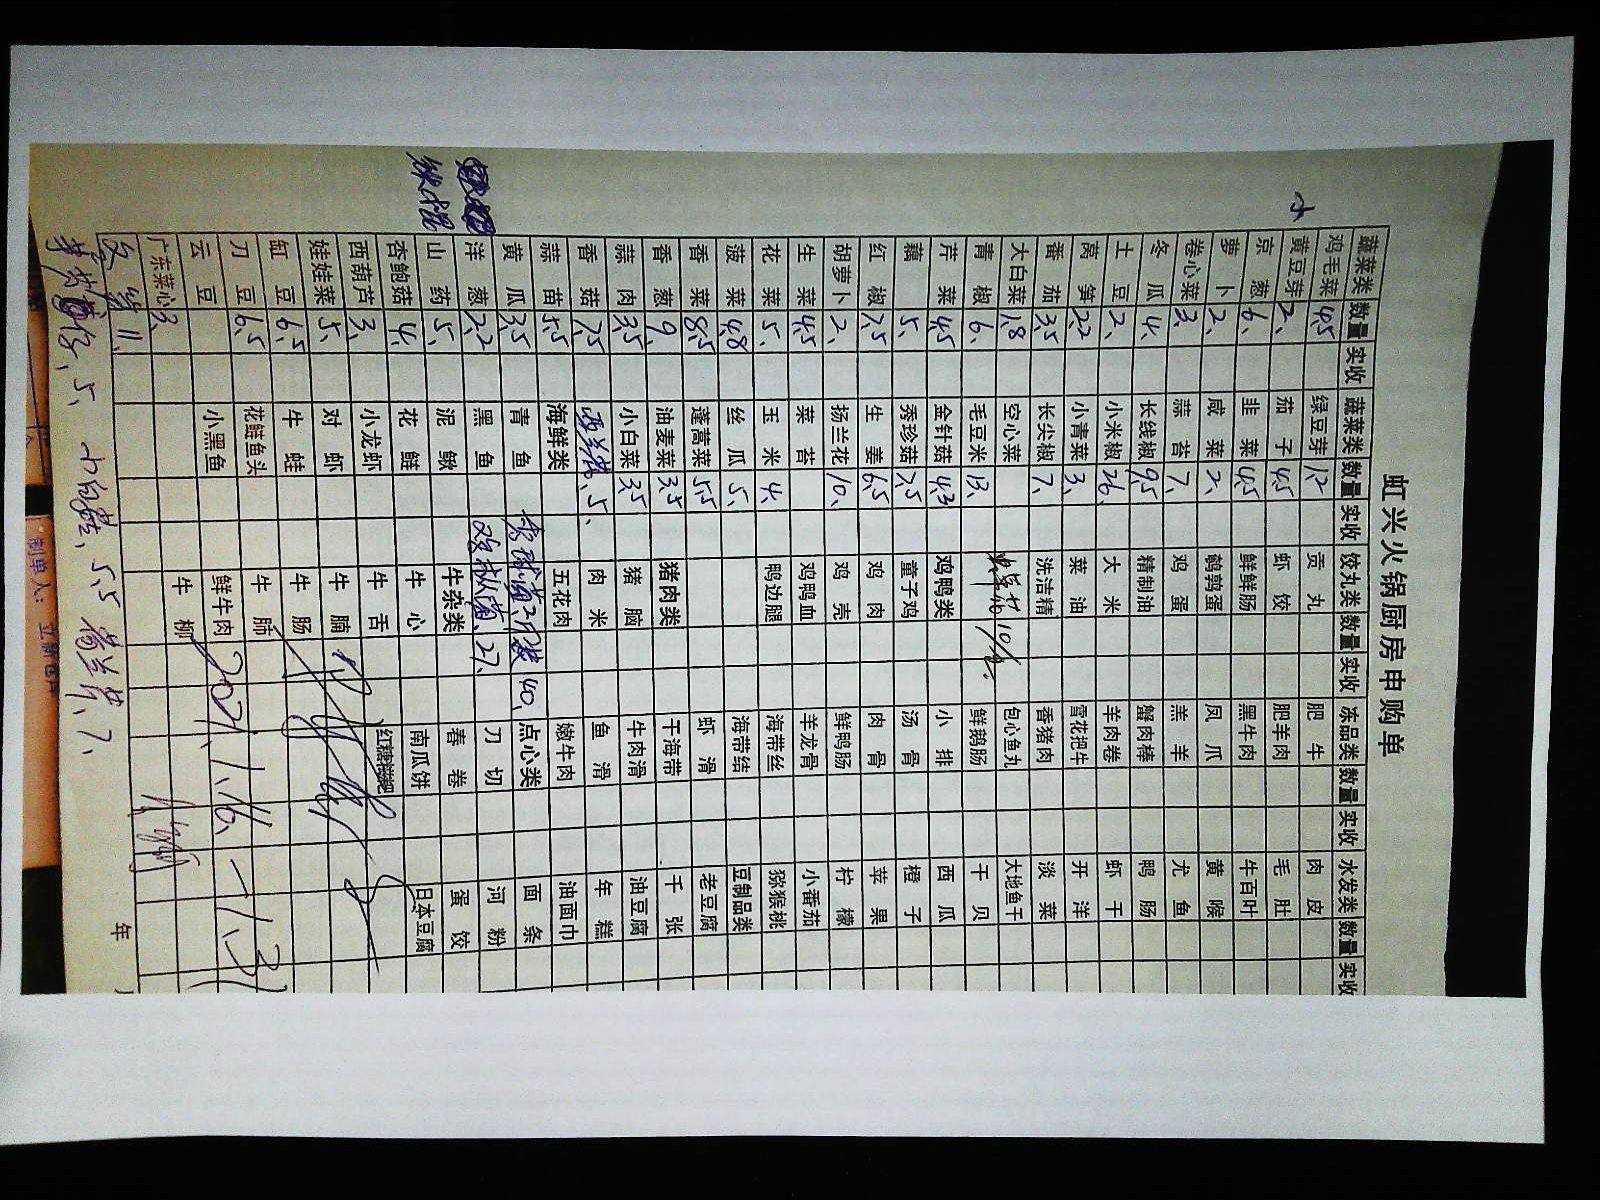 虹兴火锅厨房申购单
蔬菜类 数量 实收 蔬菜类 数量 实收 饺丸类 数量 实收 冻品类 数量 实收 水发类 数量 实收
鸡毛菜 4.5 绿豆芽 1.2 贡丸 肥牛 肉皮
黄豆芽 2、 茄子 4.5 虾饺 肥羊肉 毛肚
京葱 6、 韭菜 4.5 鲜鲜肠 黑牛肉 牛百叶
萝卜 2、 咸菜 2、 鹌鹑蛋 凤爪 黄喉
卷心菜 3、 蒜苔 7、 鸡蛋 羔羊 尤鱼
冬瓜 4、 长线椒 9.5 精制油 蟹肉棒 鸭肠
土豆 2、 小米椒 26、 大米 羊肉卷 虾干
莴笋 2.2 小青菜 3、 菜油 雪花把牛 开洋
番茄 3.5 长尖椒 7、 洗洁精 香猪肉 淡菜
大白菜 1.8 空心菜 包心鱼丸 大地鱼干
青椒 6、 毛豆米 13、 鲜鹅肠 干贝
芹菜 4.5 金针菇 4.3 鸡鸭类 小排 西瓜
藕 5、 秀珍菇 7.5 童子鸡 汤骨 橙子
红椒 7.5 生姜 6.5 鸡肉 肉骨 苹果
胡萝卜 2、 扬兰花 10、 鸡壳 鲜鸭肠 柠檬
生菜 4.5 菜苔 鸡鸭血 羊龙骨 小番茄
花菜 5、 玉米 4、 鸭边腿 海带丝 猕猴桃
菠菜 4.8 丝瓜 5、 海带结 豆制品类
香菜 8.5 蓬蒿菜 5.5 虾滑 老豆腐
香葱 9、 油麦菜 3.5 猪肉类 干海带 千张
蒜肉 3.5 小白菜 3.5 猪脑 牛肉滑 油豆腐
香菇 7.5 西兰花、5、 肉米 鱼滑 年糕
蒜苗 5.5 海鲜类 五花肉 嫩牛肉 油面巾
黄瓜 3.5 青鱼 40、 点心类 面条
洋葱 2.2 黑鱼 27、 刀切 河粉
山药 5、 泥鳅 牛杂类 春卷 蛋饺
杏鲍菇 4、 花鲢 牛心 南瓜饼 日本豆腐
西葫芦 3、 小龙虾 牛舌 红糖糍粑
娃娃菜 5、 对虾 牛腩
缸豆 6.5 牛蛙 牛肠
刀豆 6.5 花鲢鱼头 牛肺
云豆 小黑鱼 鲜牛肉 2021.1.16.－1.31
广东菜心 3、 牛柳
11、
年
制单人：